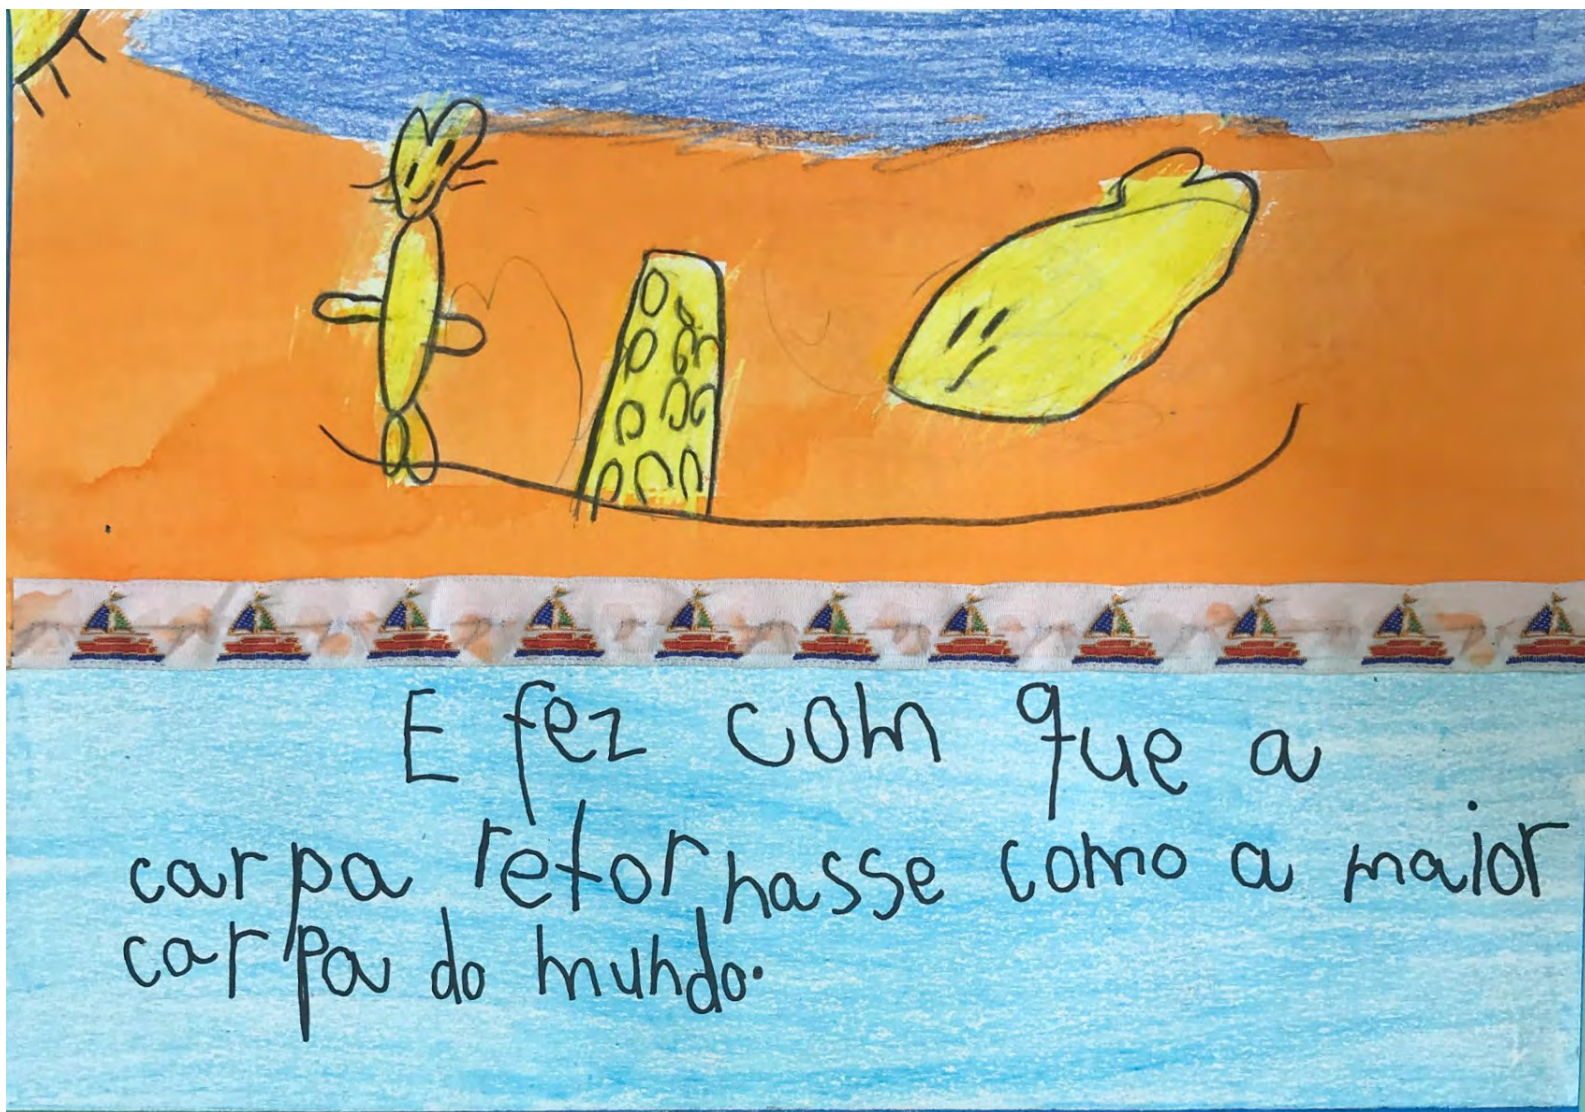 E fez com que a
carpa retornasse como a maior
carpa do mundo.